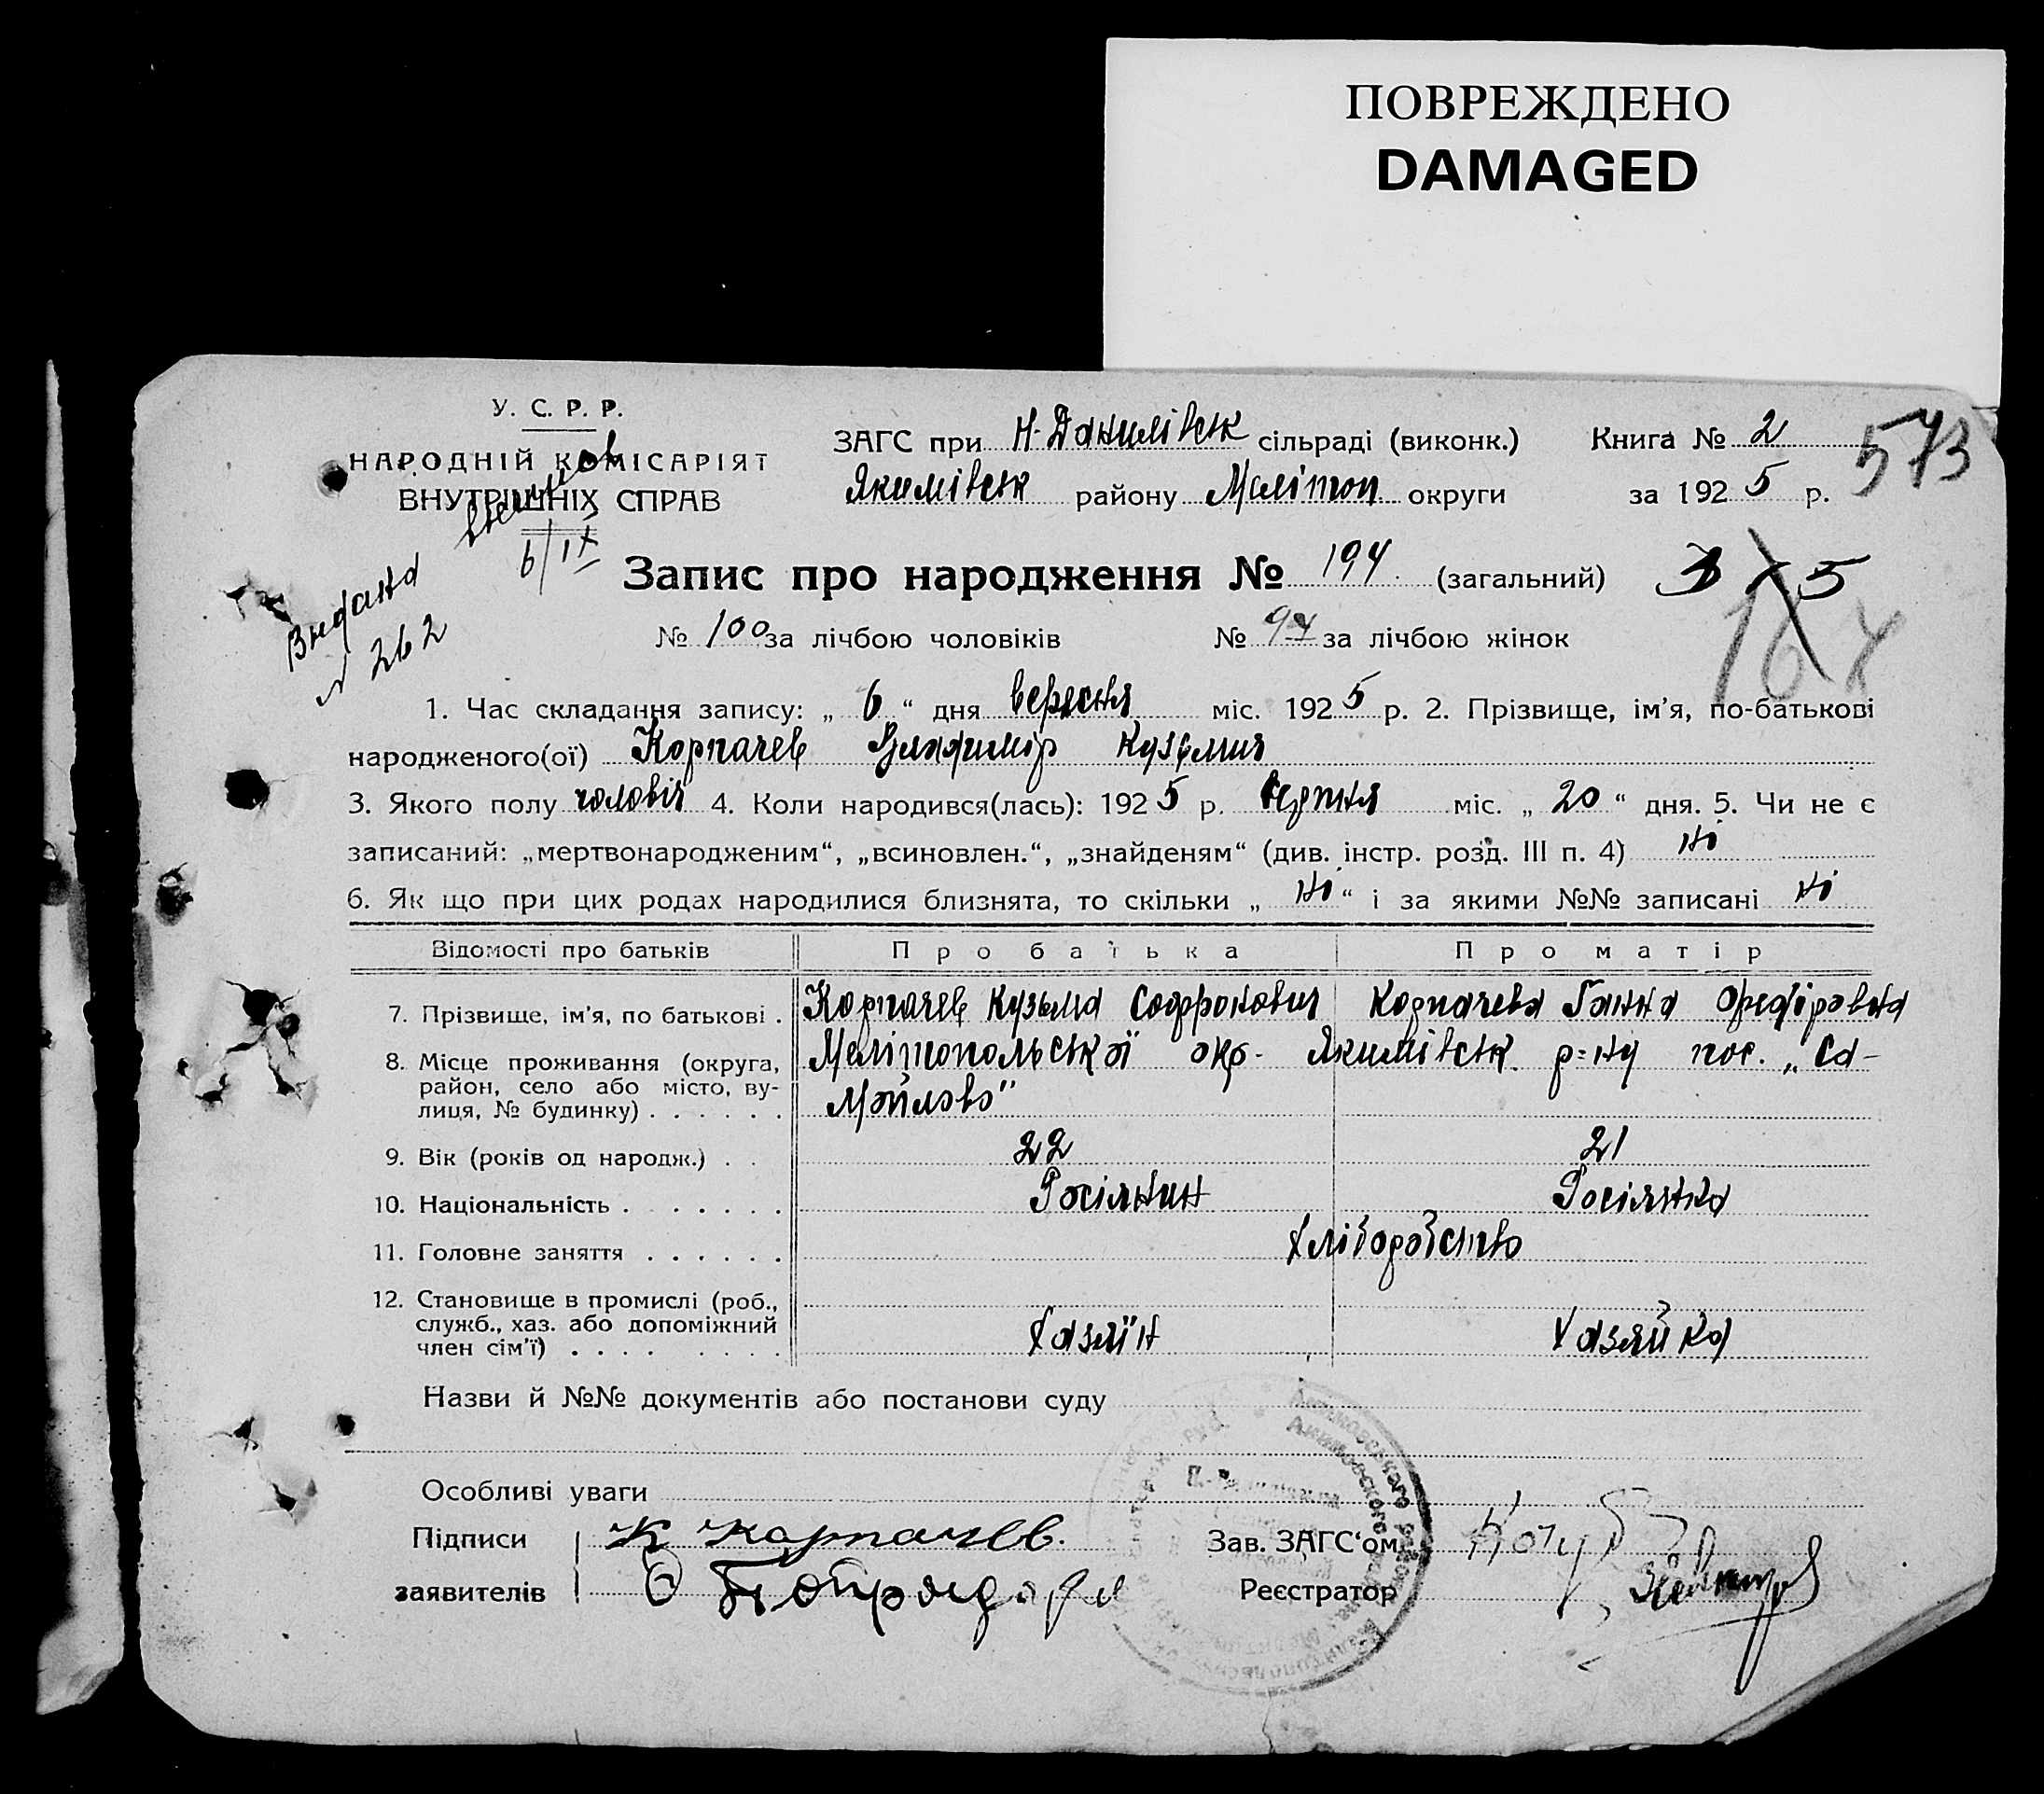 ПОВРЕЖДЕНО
DAMAGED
У. С. Р. Р.
НАРОДНІЙ КОМІСАРІЯТ
ВНУТРІШНІХ СПРАВ
ЗАГС при Н-Данилівськ сільраді (виконк.) Книга № 2
573
Якимівськ района Мелітоп. округи за 1925 р.
6/IX
Видана
№ 262
Запис про народження № 194 (загальний)
№ 100 за лічбою чоловіків № 94 за лічбою жінок
1. Час складання запису: „ 6 “ дня вересня міс. 1925 р. 2. Прізвище, ім’я, по-батькові
народженого(ої) Карпачев Владимір Кузьмич
3. Якого полу чоловіч 4. Коли народився(лась): 1925 р. серпня міс. „ 20 “ дня. 5. Чи не є
записаний: „мертвонародженим“, „всиновлен.“, „знайденям“ (див. інстр. розд. III п. 4) ні
6. Як що при цих родах народилися близнята, то скільки „ ні “ і за якими №№ записані ні
Відомості про батьків Про батька Про матір
7. Прізвище, ім’я, по батькові . Карпачев Кузьма Софронович Карпачева Ганна Федіровна
8. Місце проживання (округа, район, село або місто, вулиця, № будинку) . . . . . . Мелітопольської окр. Якимівськ. р=ну пос. „Са-
мойлово"
9. Вік (років од народж.) . . 22 21
10. Національність . . . . . . . Росіянин Росіянка
11. Головне заняття . . . . . . Хліборобство
12. Становище в промислі (роб.,
служб., хаз. або допоміжний
член сім’ї) . . . . . . . . Хазяїн Хазяйка
Назви й №№ документів або постанови суду
Особливі уваги
Підписи К Карпачев.
заявителів
Зав. ЗАГС‘ом
Реєстратор